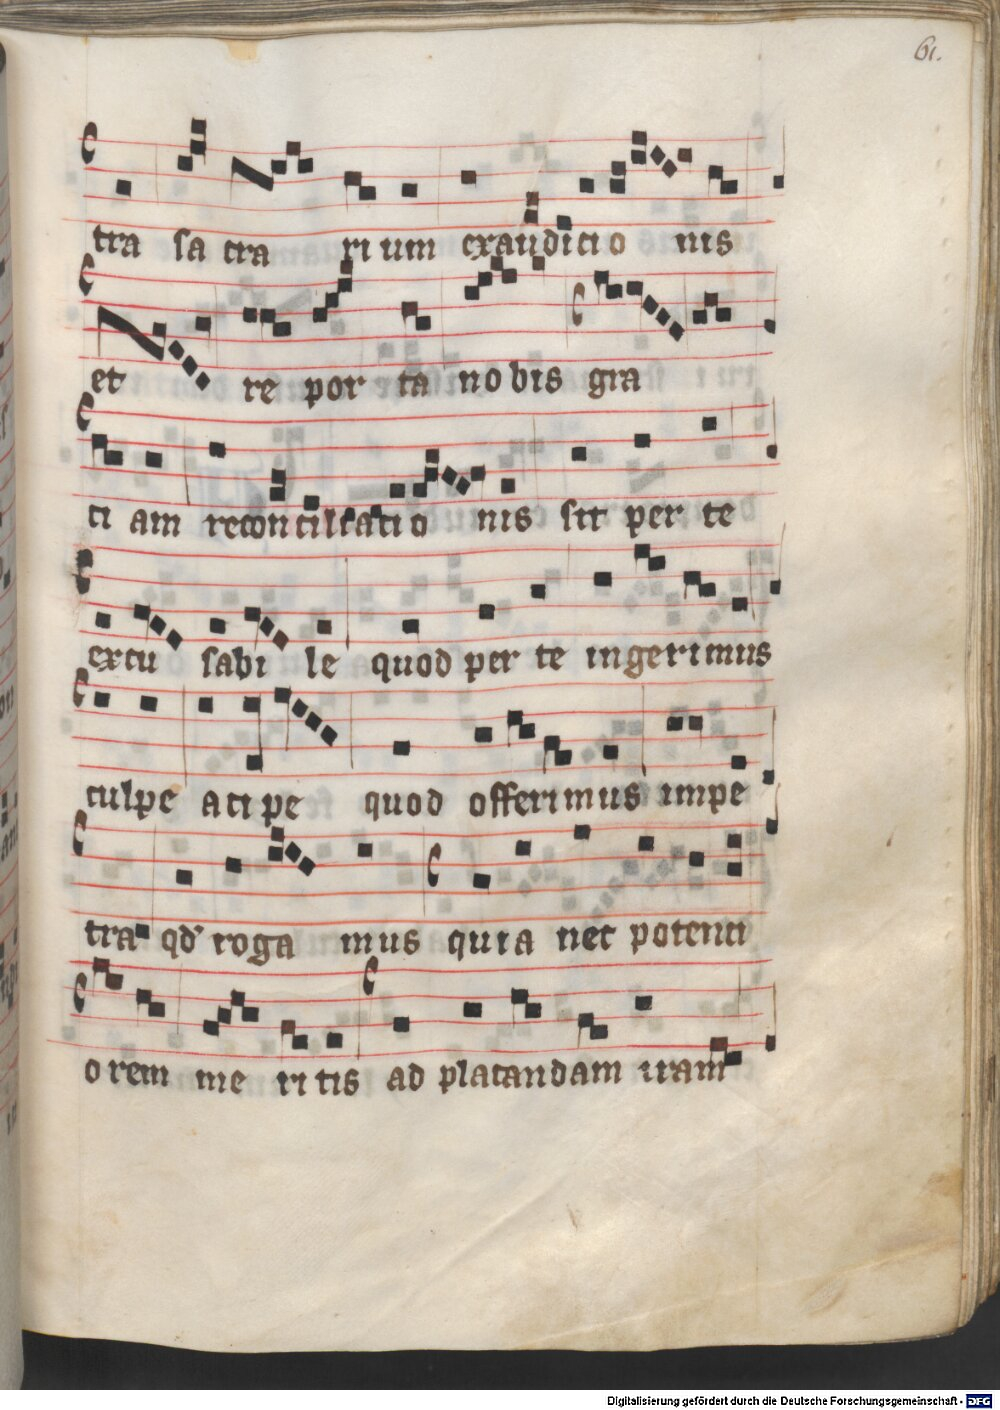 61.
tra sa cra ri um exaudicio nis
et re por ta no bis gra
ti am reconciliatio nis sit per te
excu sabi le quod per te ingerimus
culpe acipe quod offerimus impe
tra qď roga mus quia nec potenti
orem me ri tis ad placandam iram
Digitalisierung gefördert durch die Deutsche Forschungsgemeinschaft - DFG